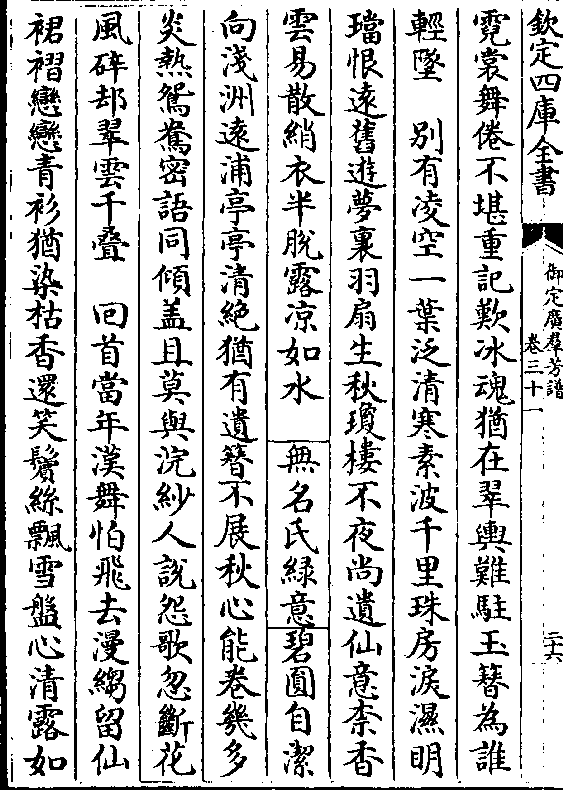 欽定四庫全書
御定廣羣芳譜
卷三十一
二十六
霓裳舞倦不堪重記歎冰魂猶在翠輿難駐玉簪為誰
輕墜　別有凌空一葉泛清寒素波千里珠房淚濕明
璫恨遠舊遊夢裏羽扇生秋瓊樓不夜尚遺仙意柰香
雲易散綃衣半脱露凉如水　無名氏緑意碧圓自潔
向淺洲遠浦亭亭清絶猶有遺簪不展秋心能卷幾多
炎熱鴛鴦密語同傾盖且莫與浣紗人説怨歌忽斷花
風碎却翠雲千疊　回首當年漢舞怕飛去漫縐留仙
裙褶戀戀青衫猶染枯香還笑鬢絲飄雪盤心清露如